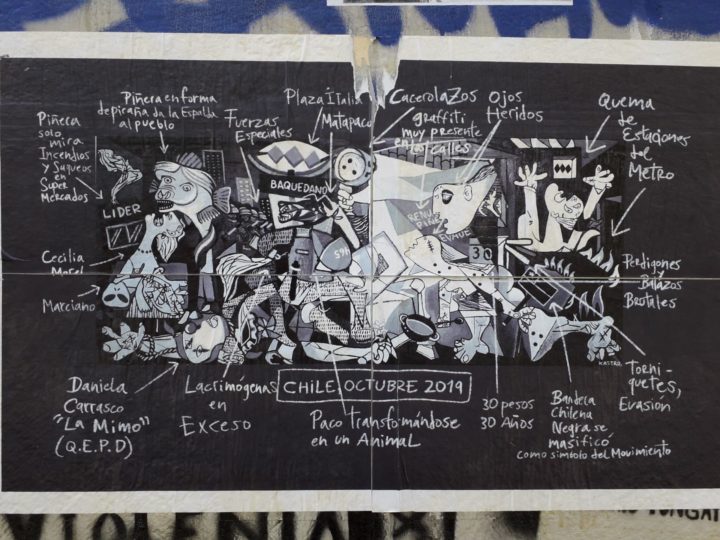 Piñera en forma
de piraña da la Espalda
al pueblo
Piñera
solo
mira
Incendios
y Saqueos
en
Super
Mercados
Fuerzas
Especiales
Plaza Italia
Matapaco
Cacerolazos
graffiti
muy presente
en las calles
Ojos
Heridos
Quema
de
Estaciones
del
Metro
LIDER
BAQUEDANO
RENUN
30
Cecilia
Morel
Marciano
Perdigones
y
Balazos
Brutales
KASTRO
Torni-
quetes,
Evasión
Daniela
Carrasco
"La Mimo"
(Q.E.P.D)
Lacrimógenas
en
Exceso
CHILE OCTUBRE 2019
Paco transformándose
en un Animal
30 pesos
30 Años
Bandera
Chilena
Negra se
masificó
como símbolo del Movimiento